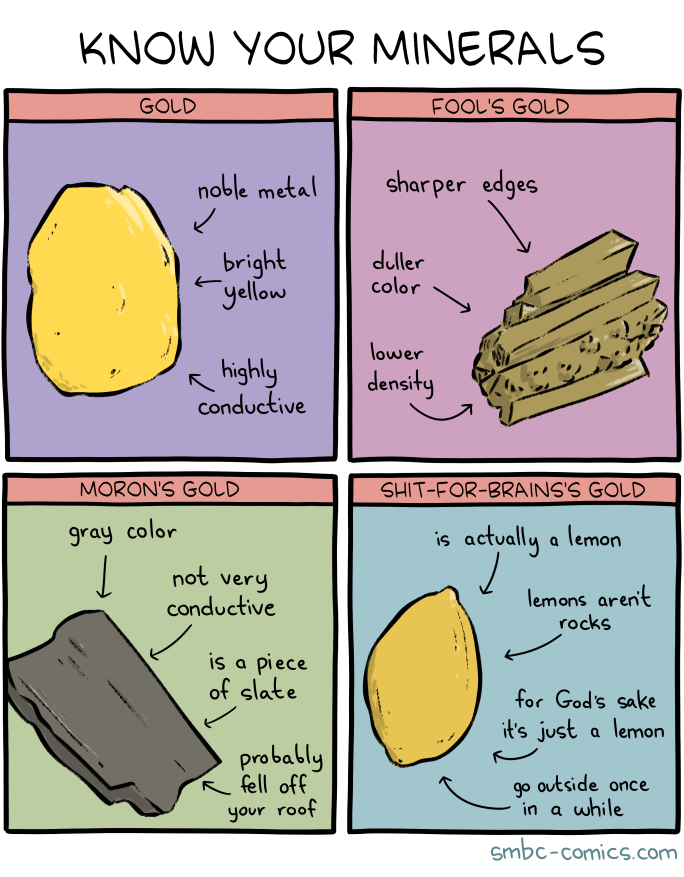 KNOW YOUR MINERALS
GOLD
noble metal
bright
yellow
highly
conductive
FOOL'S GOLD
sharper edges
duller
color
lower
density
MORON'S GOLD
gray color
not very
conductive
is a piece
of slate
probably
fell off
your roof
SHIT-FOR-BRAINS'S GOLD
is actually a lemon
lemons aren't
rocks
for God's sake
it's just a lemon
go outside once
in a while
smbc-comics.com